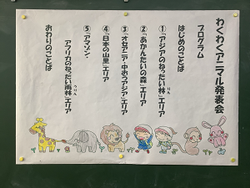 わくわくアニマル発表会
プログラム
はじめのことば
①「アジアのねったい林」エリア
②「あかんたいの森」エリア
③「オセアニア・中おうアジア」エリア
④「日本の山里」エリア
⑤「アマゾン・
アフリカのねったい雨林」エリア
おわりのことば